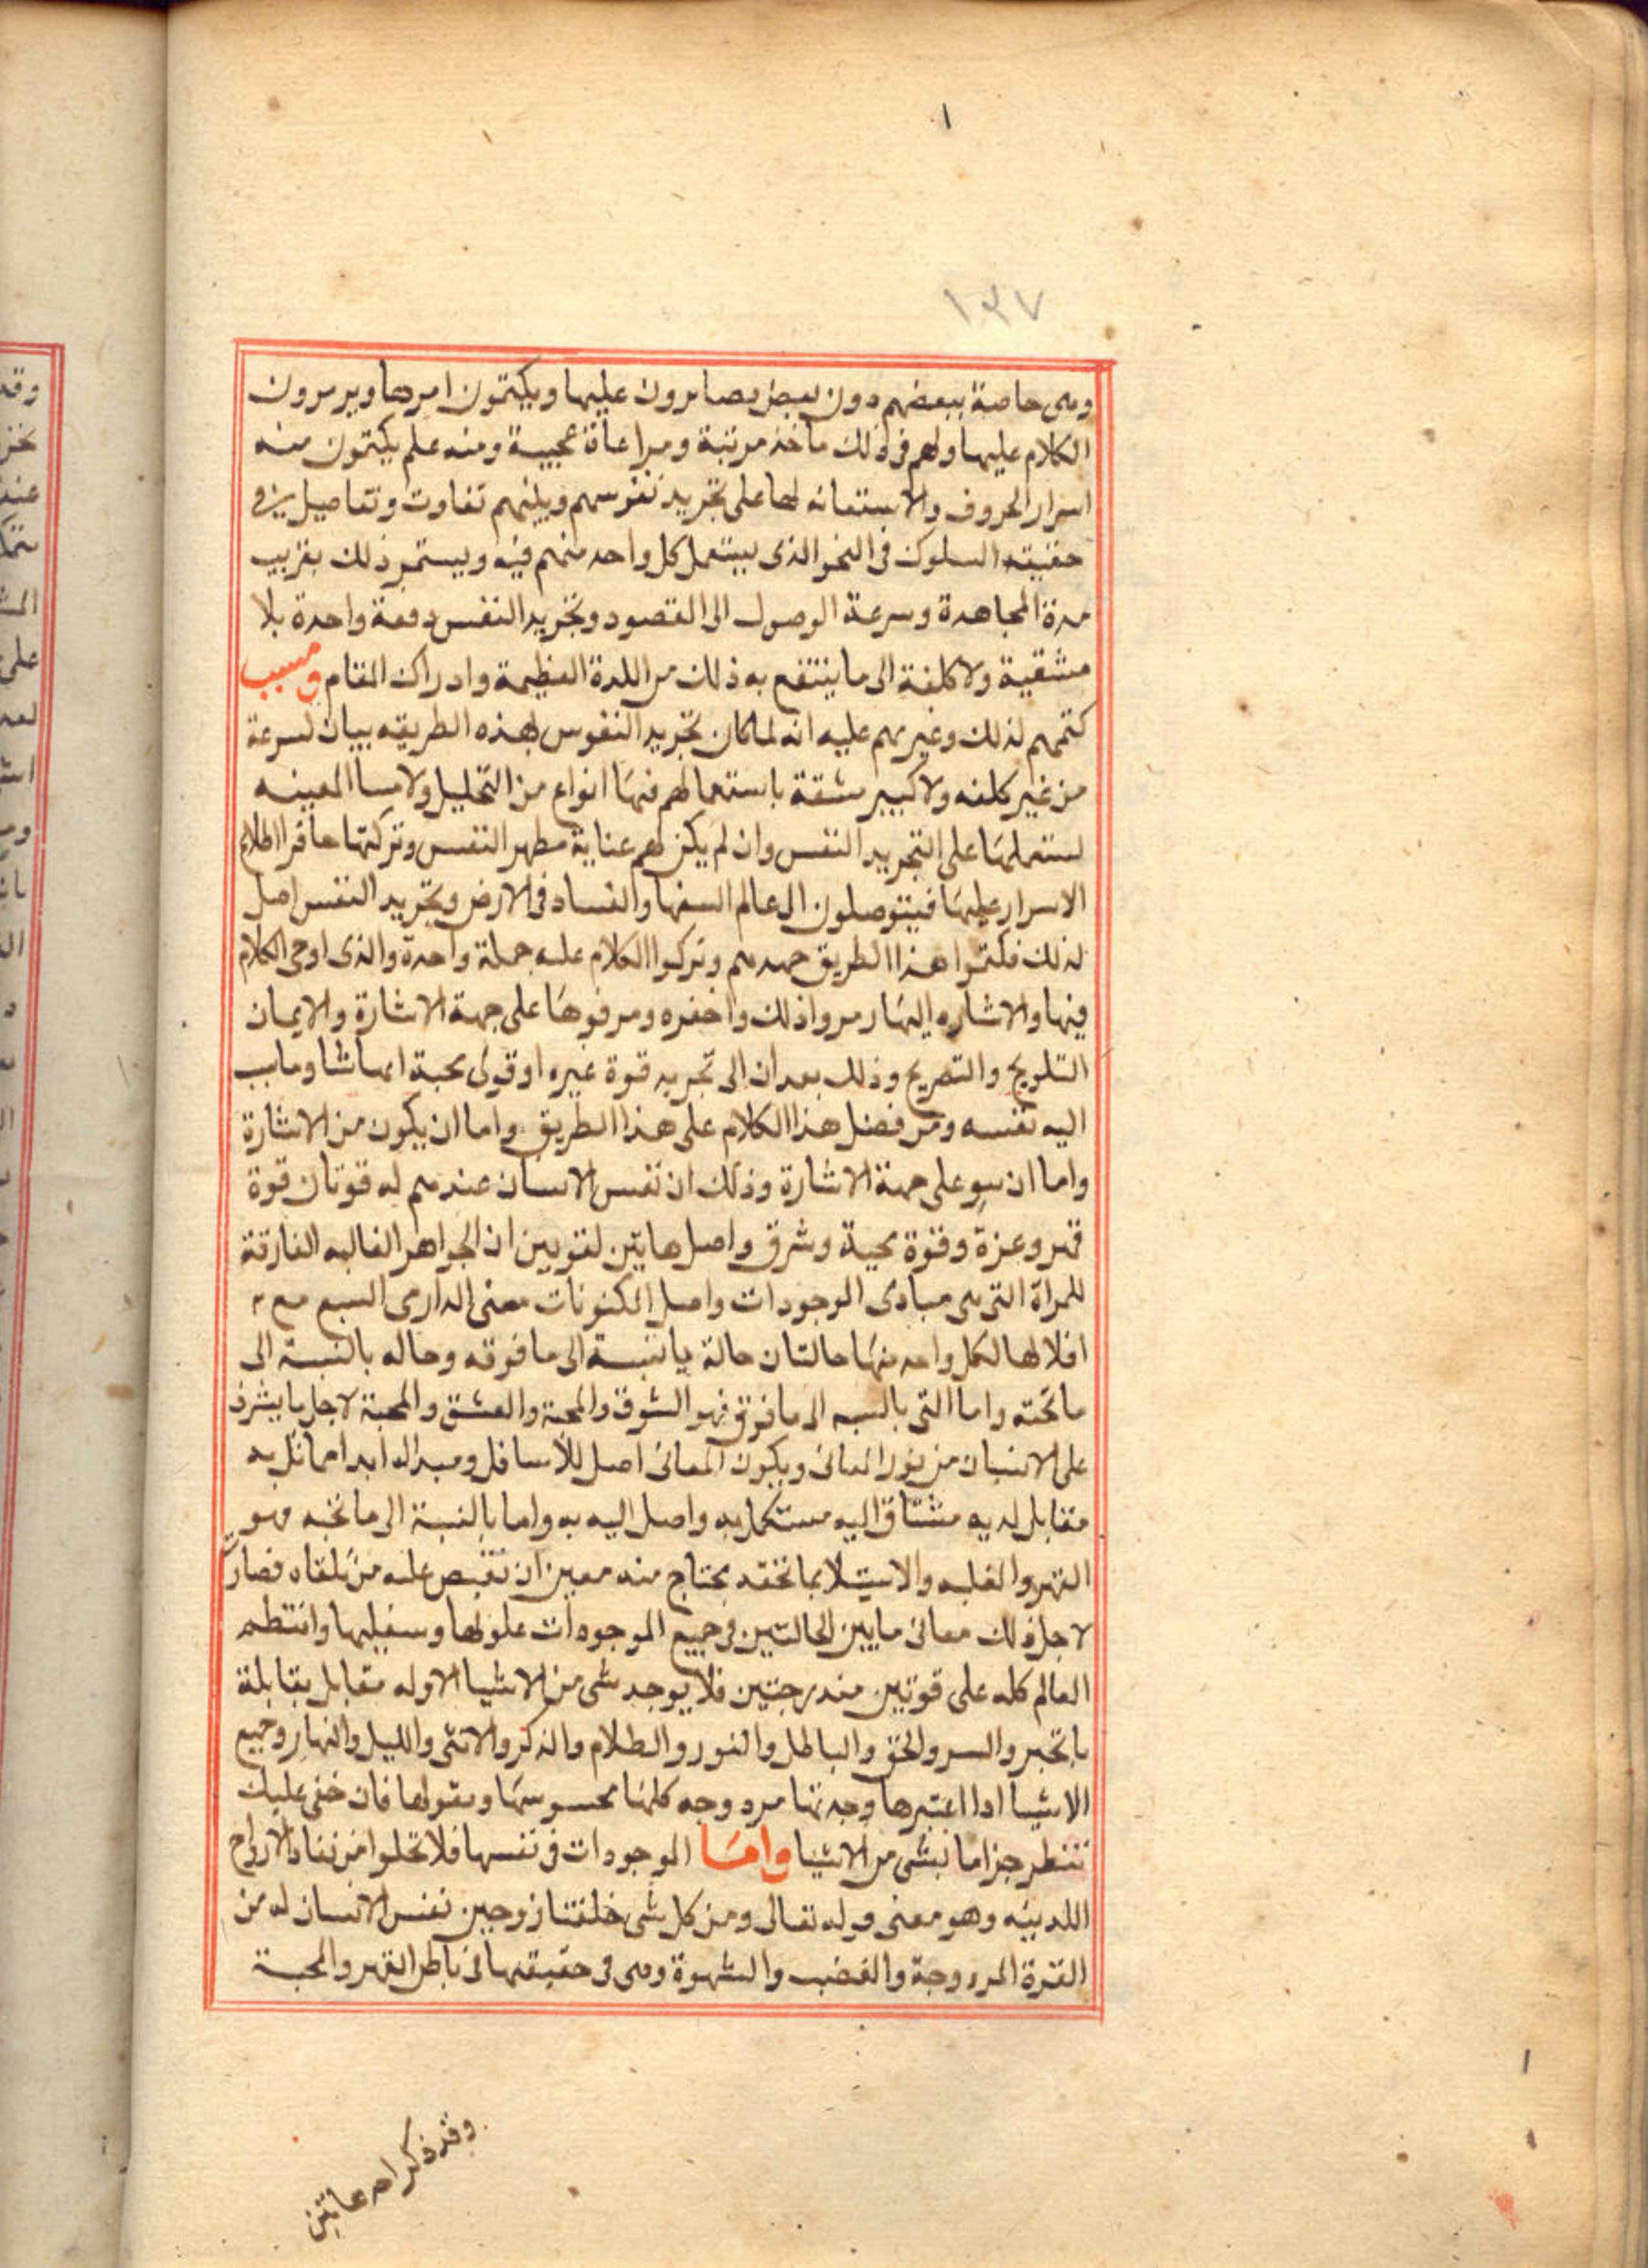 ١٣٧
وهى خاصة ببعضهم دون بعض يصابرون عليها ويكتمون امرها ويرمرون
الكلام عليها ولهم فى ذلك ماخذ مرتبة ومراعاة عجيبة ومنه علم يكتمون منه
اسرار الحروف والاستعانه لها على تجريد نفوسهم وبينهم تفاوت وتفاصيل فى
حقيقته السلوك فى النحو الذى يستعمل كل واحد منهم فيه ويستمر ذلك بقريب
مدة المجاهدة وسرعة الوصول الى القصود وتجريد النفس دفعة واحدة بلا
مشقية ولا كلفة الى ما ينتفع به ذلك من اللدة العظيمة وادراك المقام وسبب
كتمهم لذلك وغيرهم عليه انه لما كان تجريد النفوس بهذه الطريقه بيان لسرعة
من غير كلفه ولا كبير مشقة باستعمالهم فيها انواع من التحليل ولامسا المعينه
لستعملها على التجريد النفس وان لم يكن لهم عناية مطهر النفس وتركتها خافوا اطلاع
الاسرار عليها فيتوصلون الى عالم السفها والفساد فى الارض وتجريد النفس اصل
لذلك فكتموا هذا الطريق جهدهم وتركوا الكلام عليه جملة واحدة والذى اوحى الكلام
فيها والاشاره اليها رمروا ذلك واخفره ومرفوها على جهة الاشارة والايمان
التلويح والتصريح وذلك بعد ان الى تجريد قوة غيره اوقوى محبة ايهاشا ومايب
اليه نفسه ومن فضل هذا الكلام على هذا الطريق واما ان يكون من الاشارة
واما ان سو على جهة الاشارة وذلك ان نفس الانسان عندهم له قوتان قوة
قهر وعزة وقوة محبة وشرق واصل هاتين لقويين ان الجواهر الغالبه الفارقة
للمراة التى هى مبادى الوجودات واصل الكنونات معنى الدارى السبع مع
افلالها لكل واحد منها حالتان حالة بالنبسة الى ما فوقه وحاله بالنسبة الى
ما تحته واما التى بالنسبه الى ما فوق فهو الشوق والمحبة والعشق والمحبة لاجل ما يشرف
على الانسان من نور المعانى ويكون المعانى اصل للاسافل ومبدا لها ابدا مماثل به
مقابل لديه مشتاق اليه مستكمل به واصل اليه به واما بالنسبة الى ما تحته فهو
القهر والغلبه والاستيلا بما تحته يحتاج منه معين ان تقبض عليه من تلقاه فصارت
لاجل ذلك معانى مابين الحالتين فى جميع الموجودات علوها وسفيلها وانتظم
العالم كله على قوتين مندرجتين فلا يوجد شى من الاشيا الا وله مقابل بقابلة
بالخير والسر والحق والباطل والنور والطلام والذكر والانثى والليل والنهار وجميع
الاشيا ادا اعتبرها وجدتها مردوجه كلها محسوسها ومعقولها فان خفى عليك
تنظر جزاما نبشى من الاشيا واما الموجودات فى نفسها فلا تخلوا من نفاد الارواح
اللدينه وهو معنى قوله تعالى ومن كل شى خلقنا زوجين نفس الانسان له من
القوة المردوجة والغضب والشهوة وهى فى حقيقتها فى باطن القهر والمحبة
وقد ذكرا